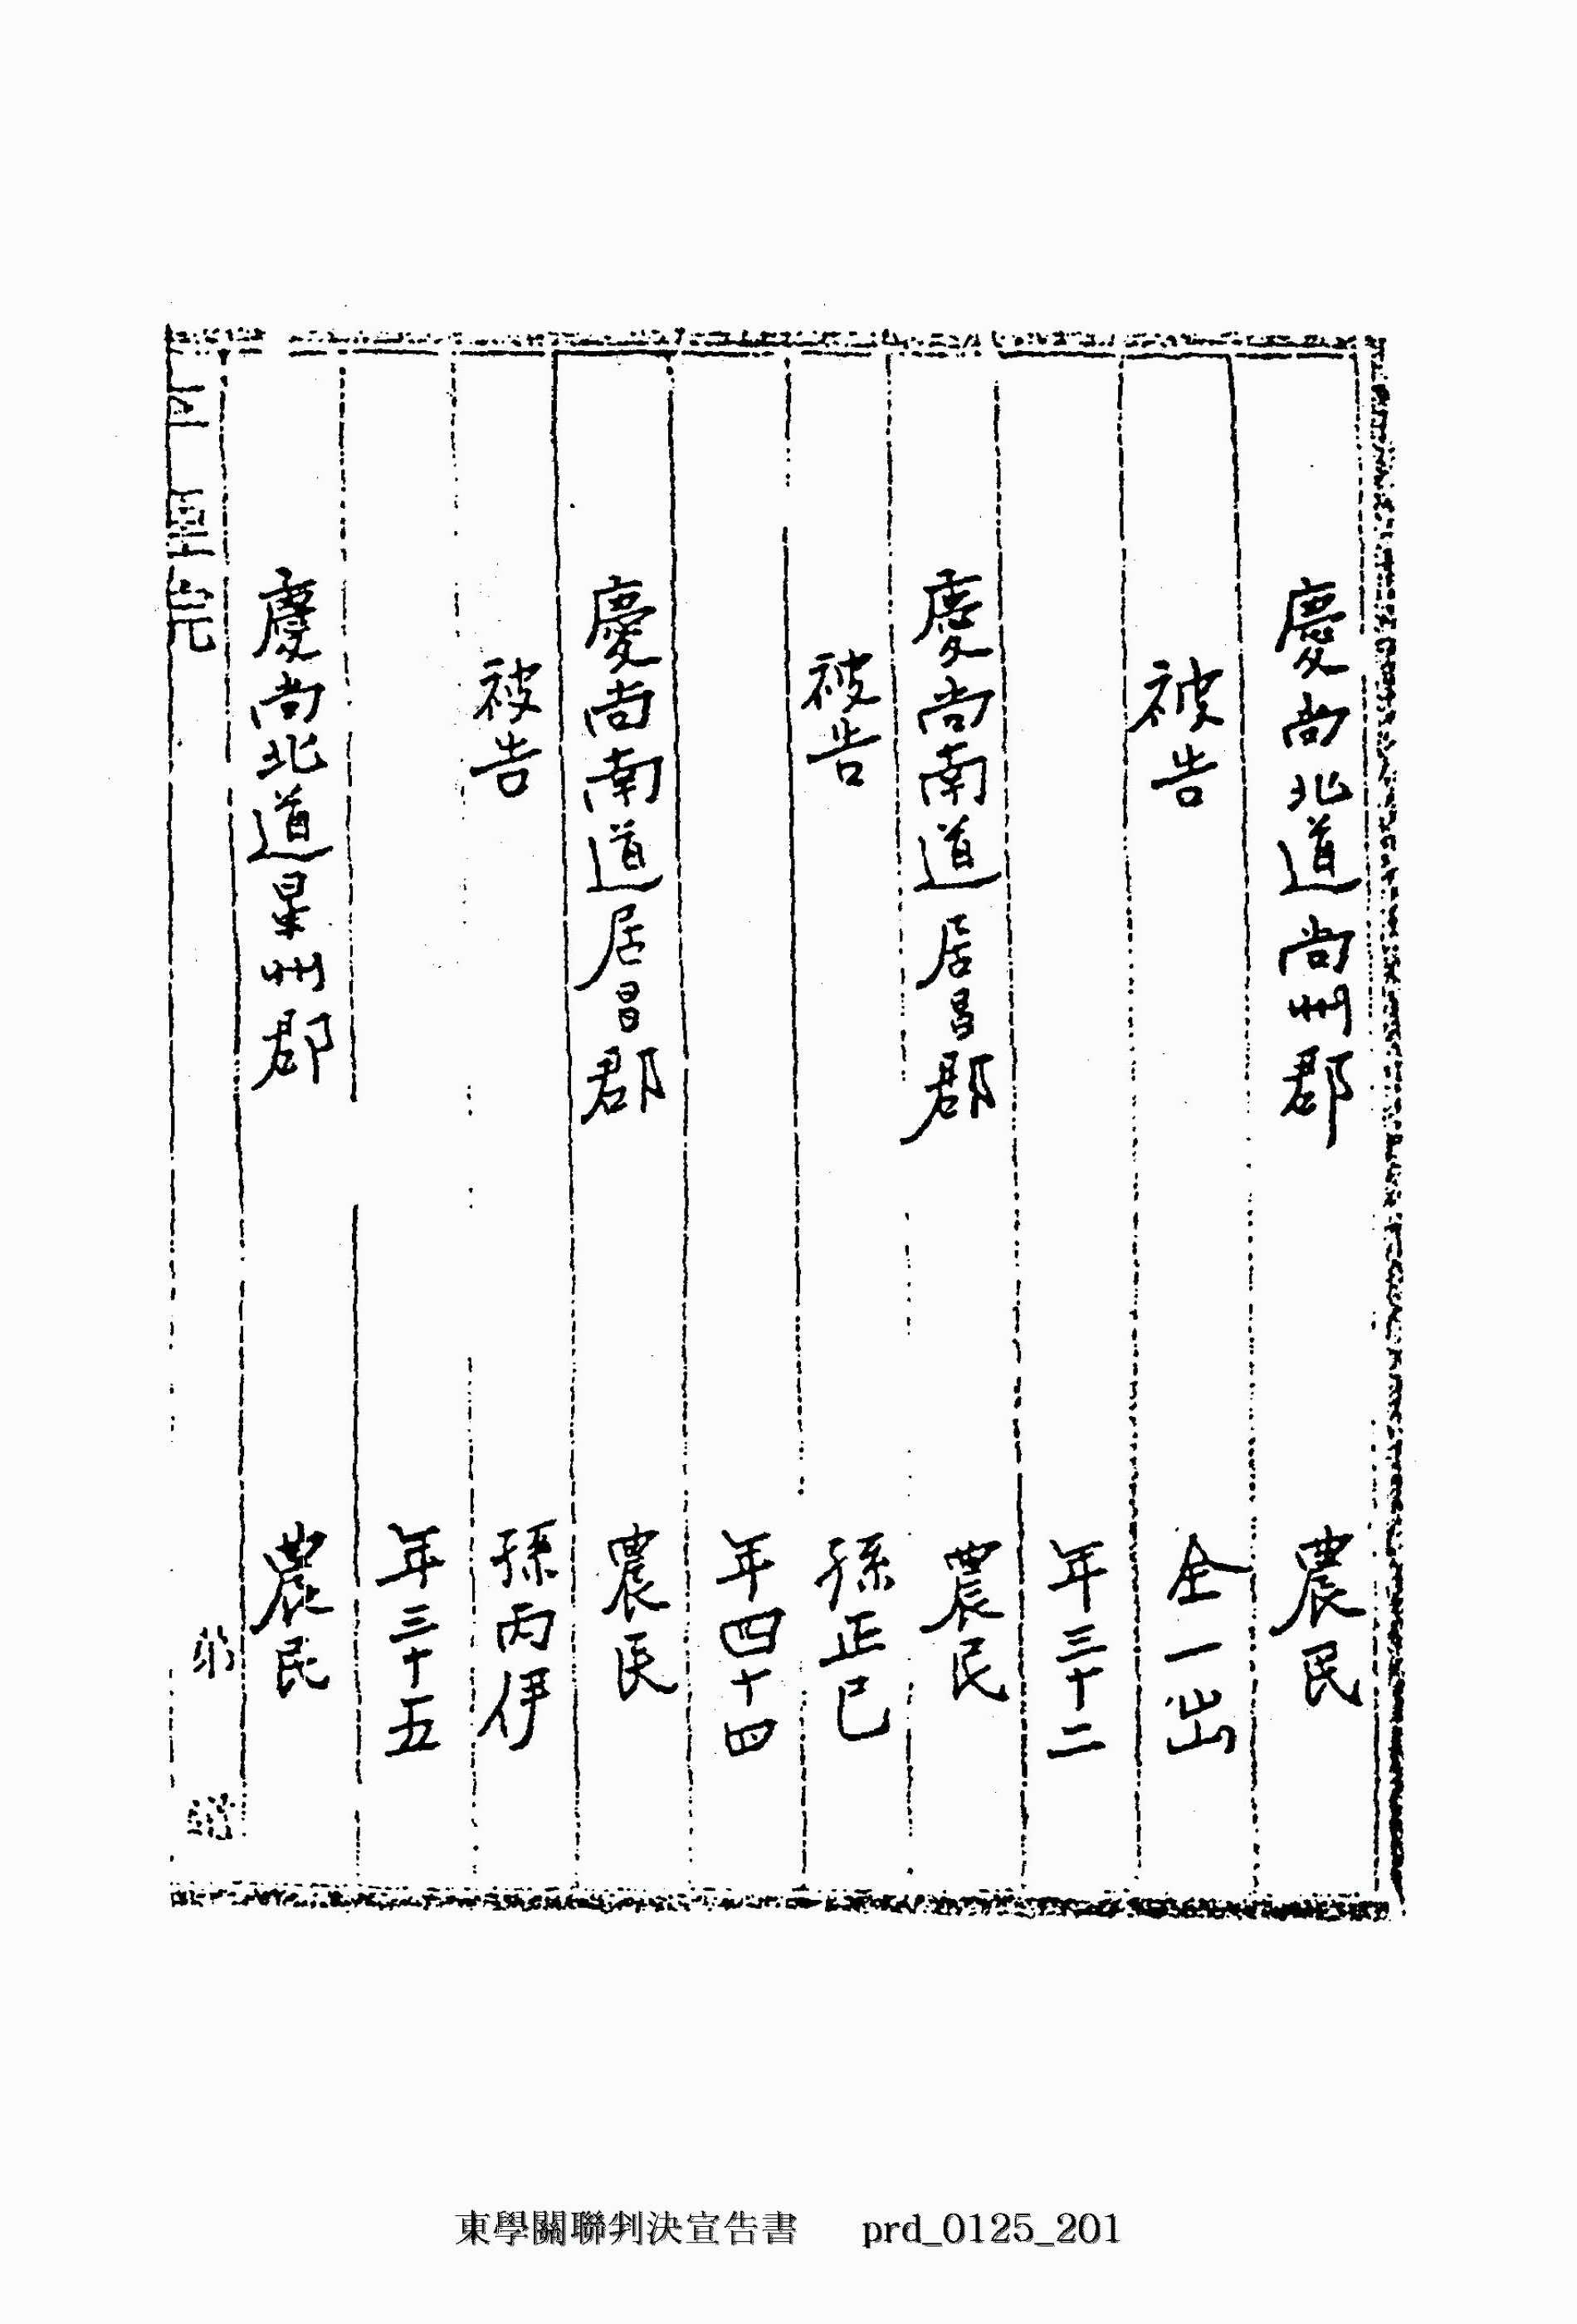 慶尚北道尚州郡 農民
被告 全一岀
年三十二
慶尚南道居昌郡 農民
被告 孫正已
年四十四
慶尚南道居昌郡 農民
被告 孫丙伊
年三十五
慶尚北道星州郡 農民
東學關聯判決宣告書 prd_0125_201